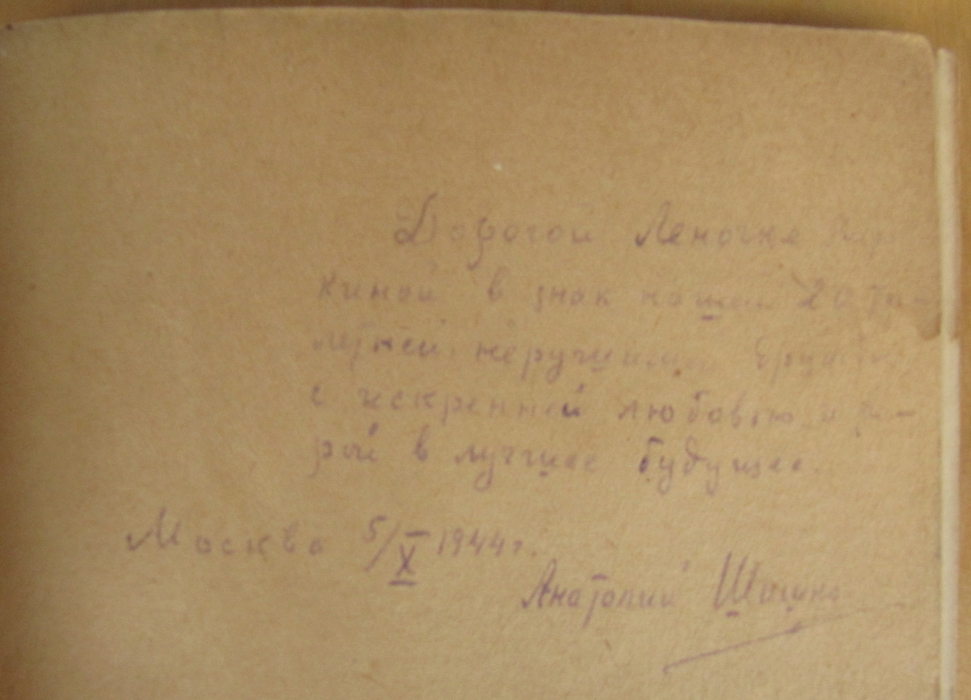 Дорогой Леночке
киной в знак нашей 20 ти
летней нерушимой дружбы
с искренней любовью и ве-
рой в лучшее будущее.
Москва 5/X 1944 г.
Анатолий Шишко